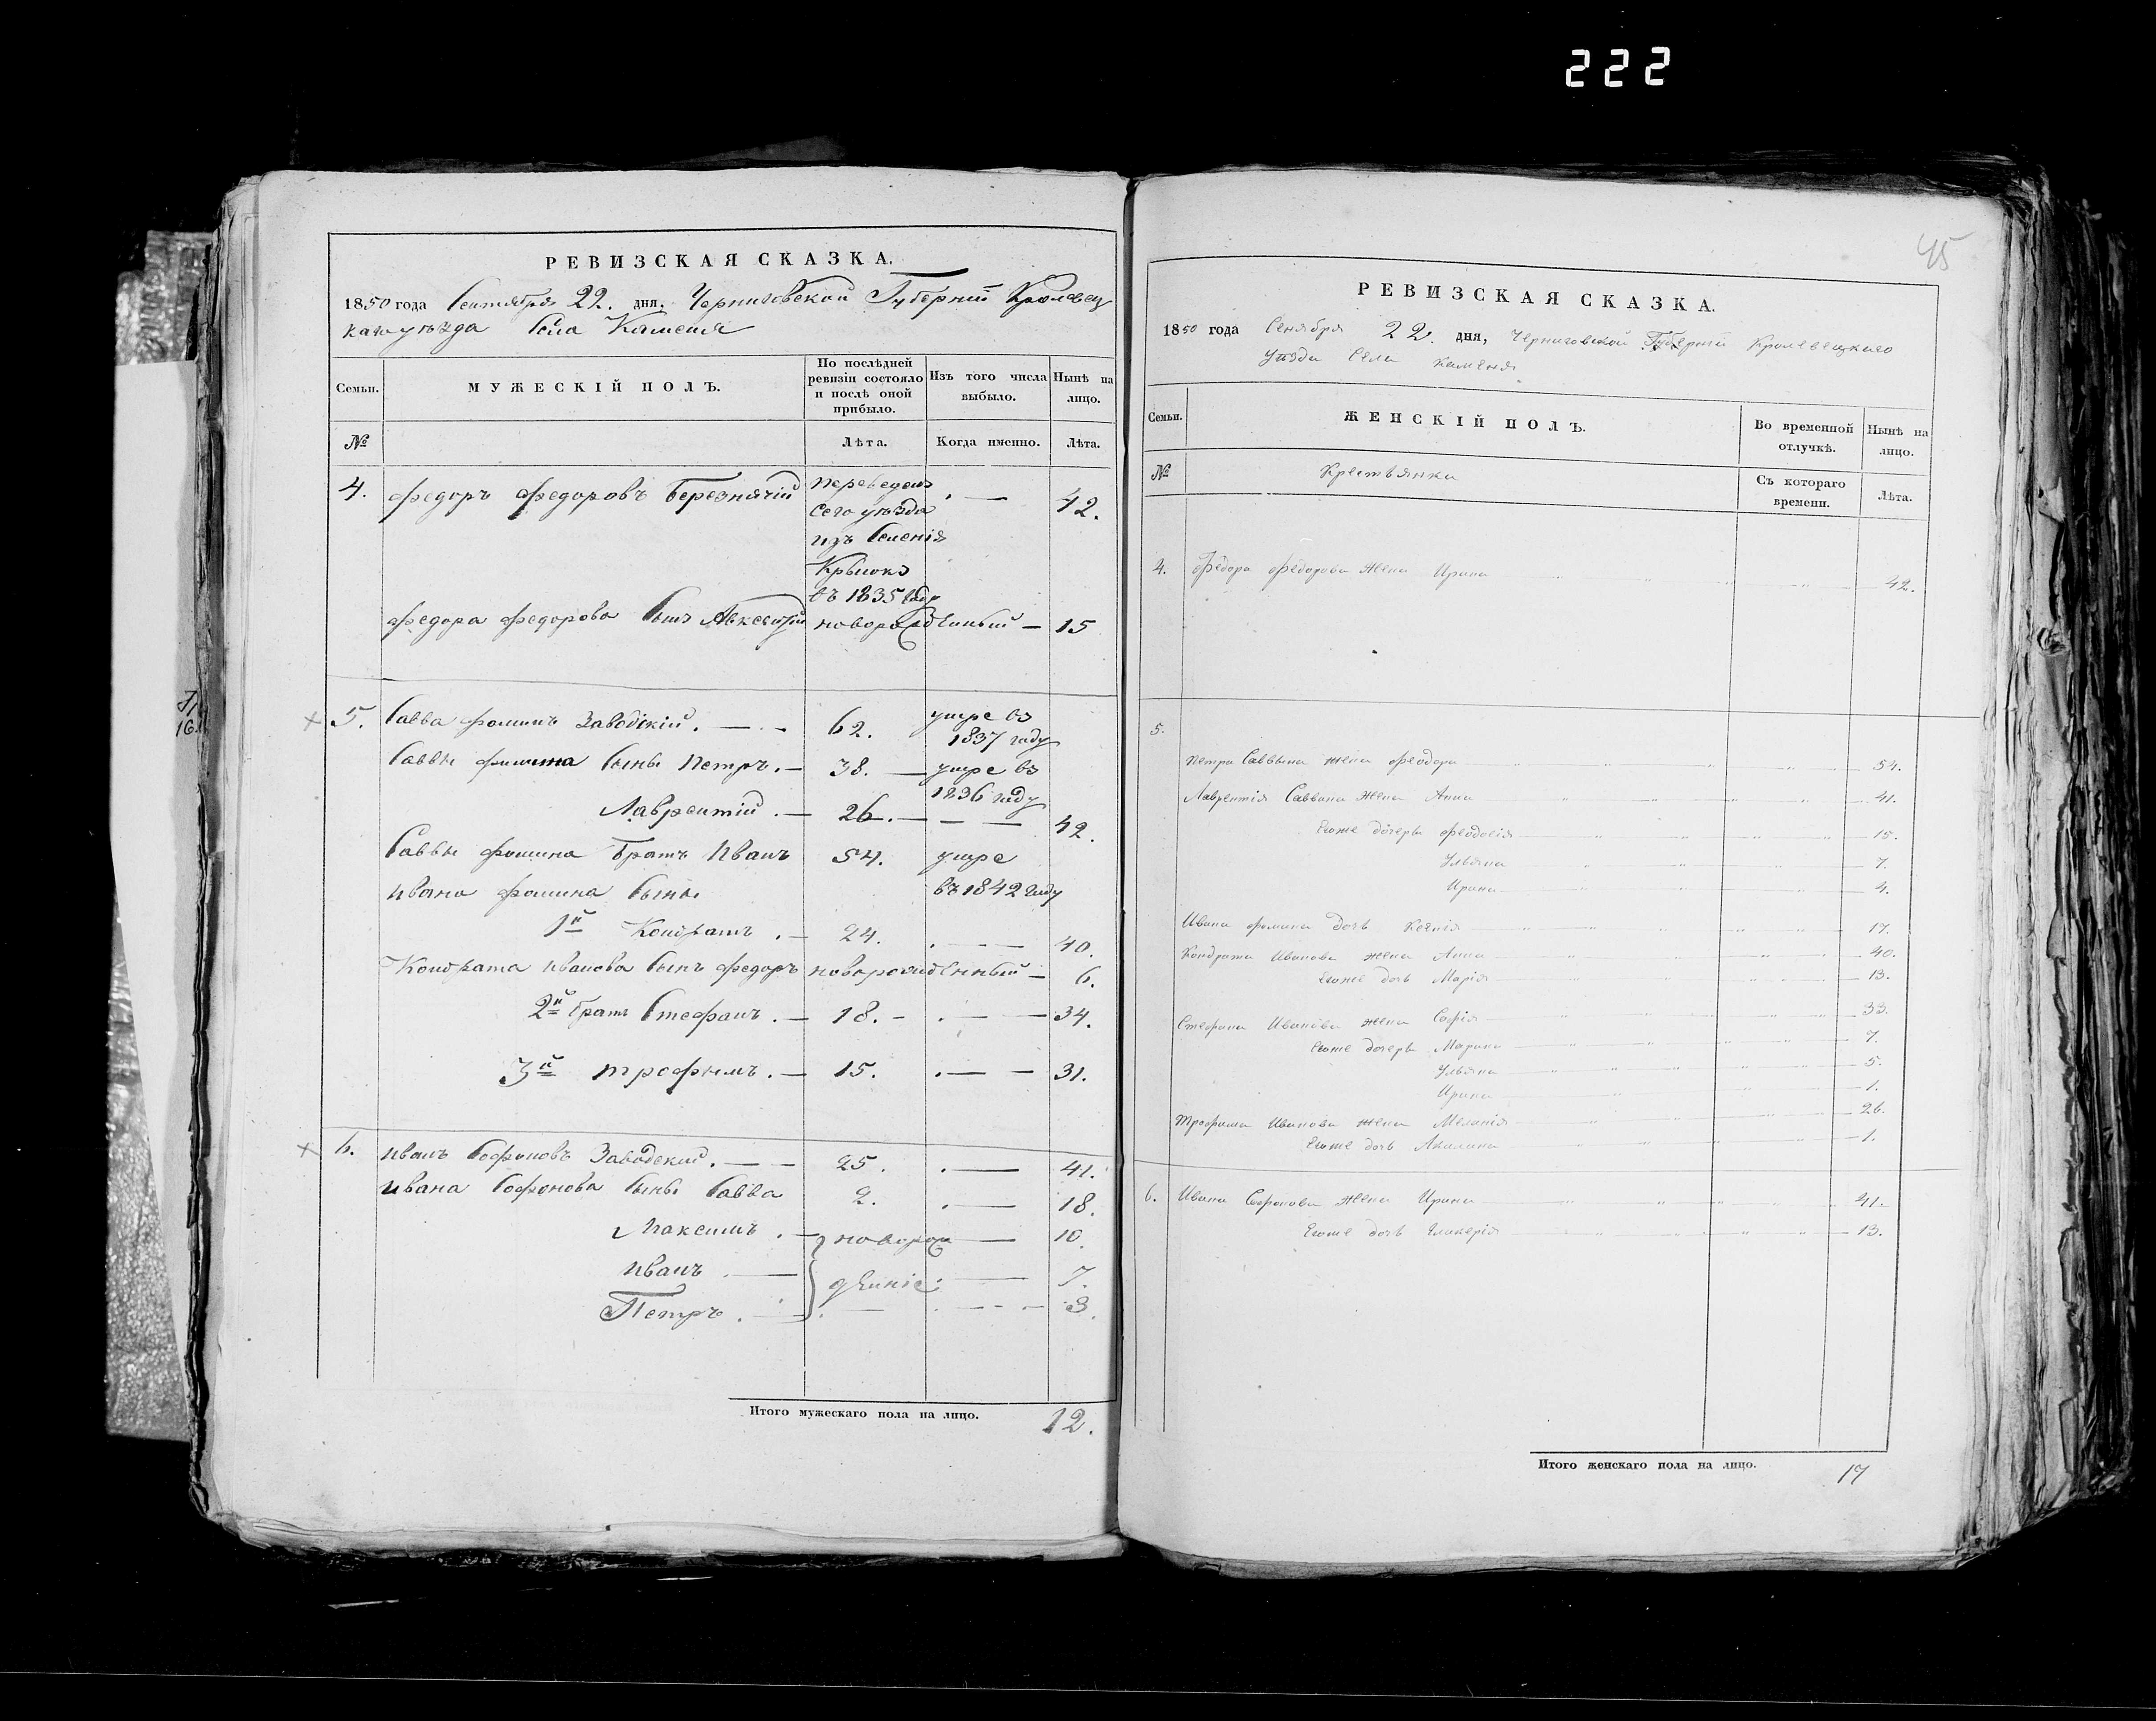 222
РЕВИЗСКАЯ СКАЗКА.
1850 года Сентября 22. дня. Черниговской Губернии Кролевец
каго уѣзда Села Каменя
Семьи.
МУЖЕСКІЙ ПОЛЪ.
По послѣдней ревизіи состояло и послѣ оной прибыло.
Изъ того числа выбыло.
Нынѣ на лицо.
№
Лѣта.
Когда именно.
Лѣта.
4. Федоръ Федоровъ Березнячій переведенъ — 42.
сего уѣзда
изъ
въ 1835 году
Федора Федорова сынъ Авксентій новорожденный — 15
5. Савва Фоминъ Заводскій. — 62. умре въ
1837 году
Саввы Фомина сыны Петръ. — 38. — умре въ
1836 году
Лаврентій. — 26. — — — 42.
Саввы Фомина братъ Иванъ 54. умре
Ивана Фомина сыны въ 1842 году
1й Кондратъ. — 24. . — 40.
Кондрата Иванова сынъ Федоръ новорожденный — 6.
2й братъ Стефанъ. — 18. — . — — 34.
3й Трофимъ. — 15. . — — 31.
6. Иванъ Софроновъ Заводский. — — 25. . — 41.
Ивана Софронова сыны Савва 2. . — 18.
Максимъ. — новорож — 10.
Иванъ. — дѣніе: — 7.
Петръ. — . — — 3.
Итого мужескаго пола на лицо. 12.
45
РЕВИЗСКАЯ СКАЗКА.
1850 года Сенября 22. дня, Черниговской Губерніи Кролевецкаго
уѣзда Села Каменя
Семьи.
ЖЕНСКІЙ ПОЛЪ.
Во временной отлучкѣ.
Нынѣ на лицо.
№
Крестьянки
Съ котораго времени.
Лѣта.
4. Федора Федорова жена Ирина 42.
5.
Петра Саввина жена Феодора 54.
Лаврентія Саввина жена Анна 41.
Егоже дочери Феодосія 15.
Ульяна 7.
Ирина 4.
Ивана Фомина дочь Ксенія 17.
Кондрата Иванова жена Анна 40.
Егоже дочь Марія 13.
Стефана Иванова жена Софія 33.
Егоже дочери Марина 7.
Ульяна 5.
Ирина 1.
Трофима Иванова жена Меланія 26.
Егоже дочь Акилина 1.
6. Ивана Софронова жена Ирина 41.
Егоже дочь Гликерія 13.
Итого женскаго пола на лицо. 17